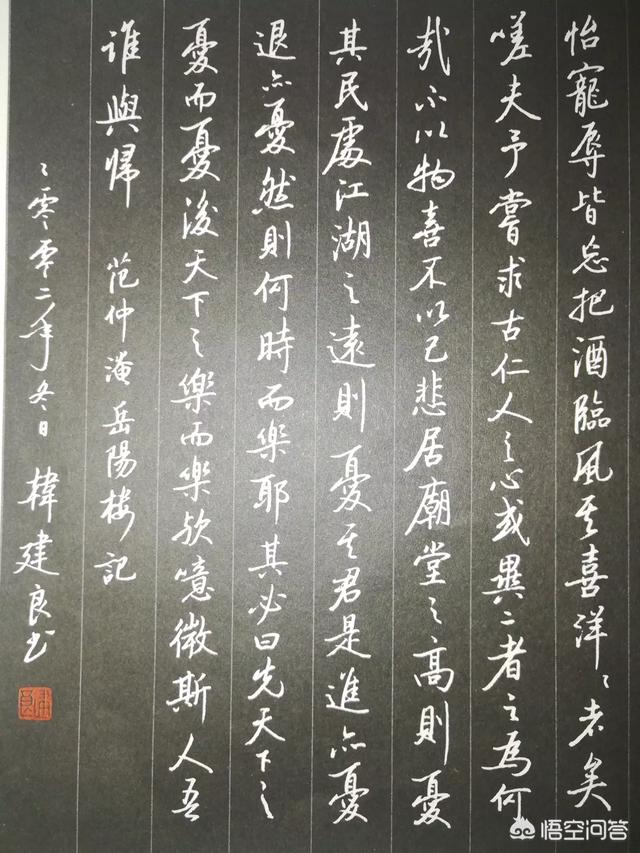 怡寵辱皆忘把酒臨風其喜洋〻者矣
嗟夫予嘗求古仁人之心或異二者之為何
哉不以物喜不以己悲居廟堂之高則憂
其民處江湖之遠則憂其君是進亦憂
退亦憂然則何時而樂耶其必曰先天下之
憂而憂後天下之樂而樂欤噫微斯人吾
誰與歸 范仲淹岳陽楼記
二零零二年冬日 建良书
悟空问答